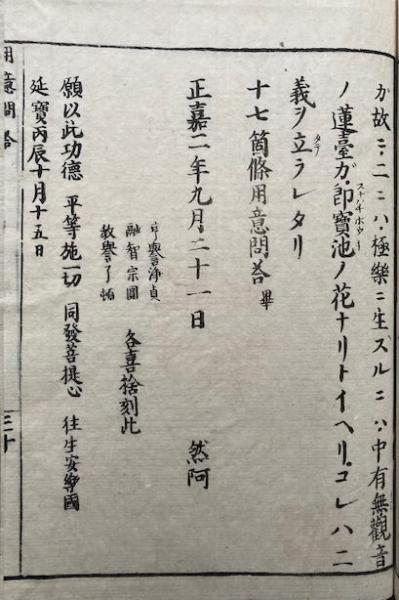 カ故ニ、二ニハ、極樂ニ生スルニハ、中有無觀音
ノ蓮臺ガ、即寶池ノ花ナリトイヘリ、コレハ二
義ヲ立ラレタリ
十七箇條用意問荅 畢
正嘉二年九月二十一日 然阿
融智宗圓
各喜捨刻此
願以此功德 平等施一切 同發菩提心 往生安樂國
延寶丙辰十月十五日
用意問荅 三十